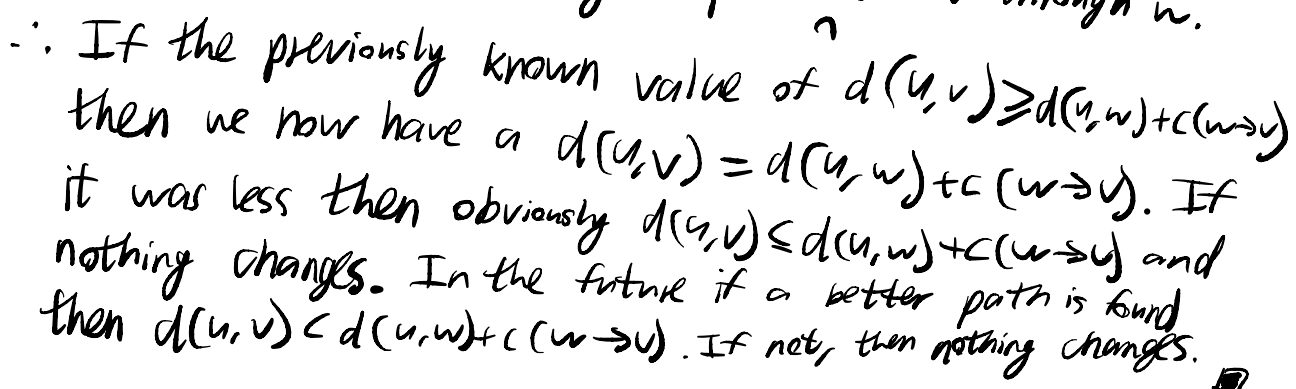 through w.
∴ If the previously known value of d(u,v)⩾d(u,w)+c(w→v)
then we now have a d(u,v) = d(u,w)+c(w→v). If
it was less then obviously d(u,v)≤d(u,w)+c(w→v) and
nothing changes. In the future if a better path is found
then d(u,v)<d(u,w)+c(w→v). If not, then nothing changes.